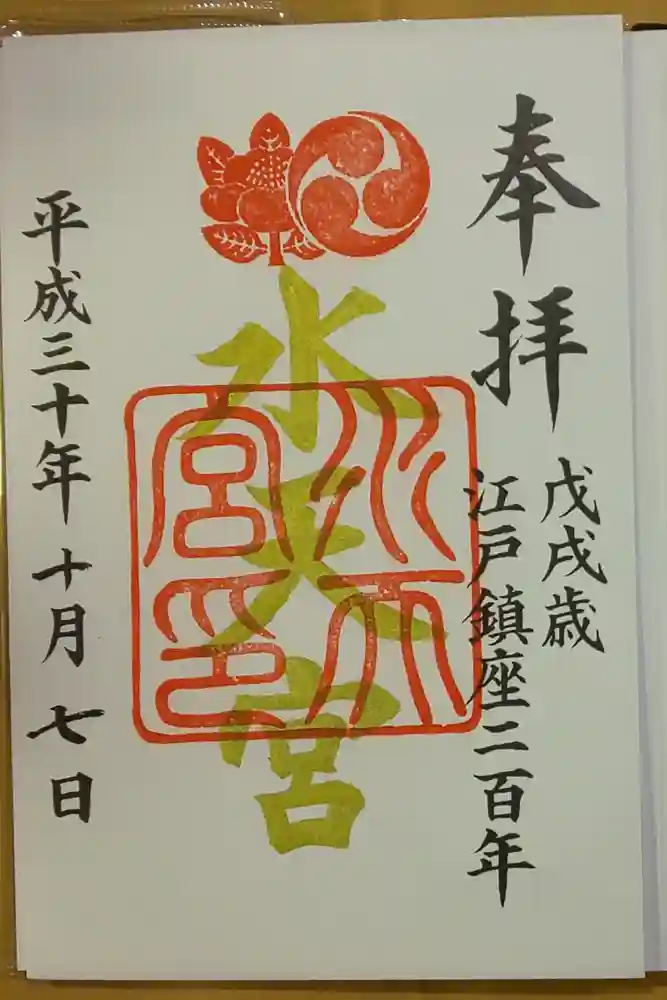 奉拝
戊戌歳
江戸鎮座二百年
水天宮
水天宮印
平成三十年 十月 七日